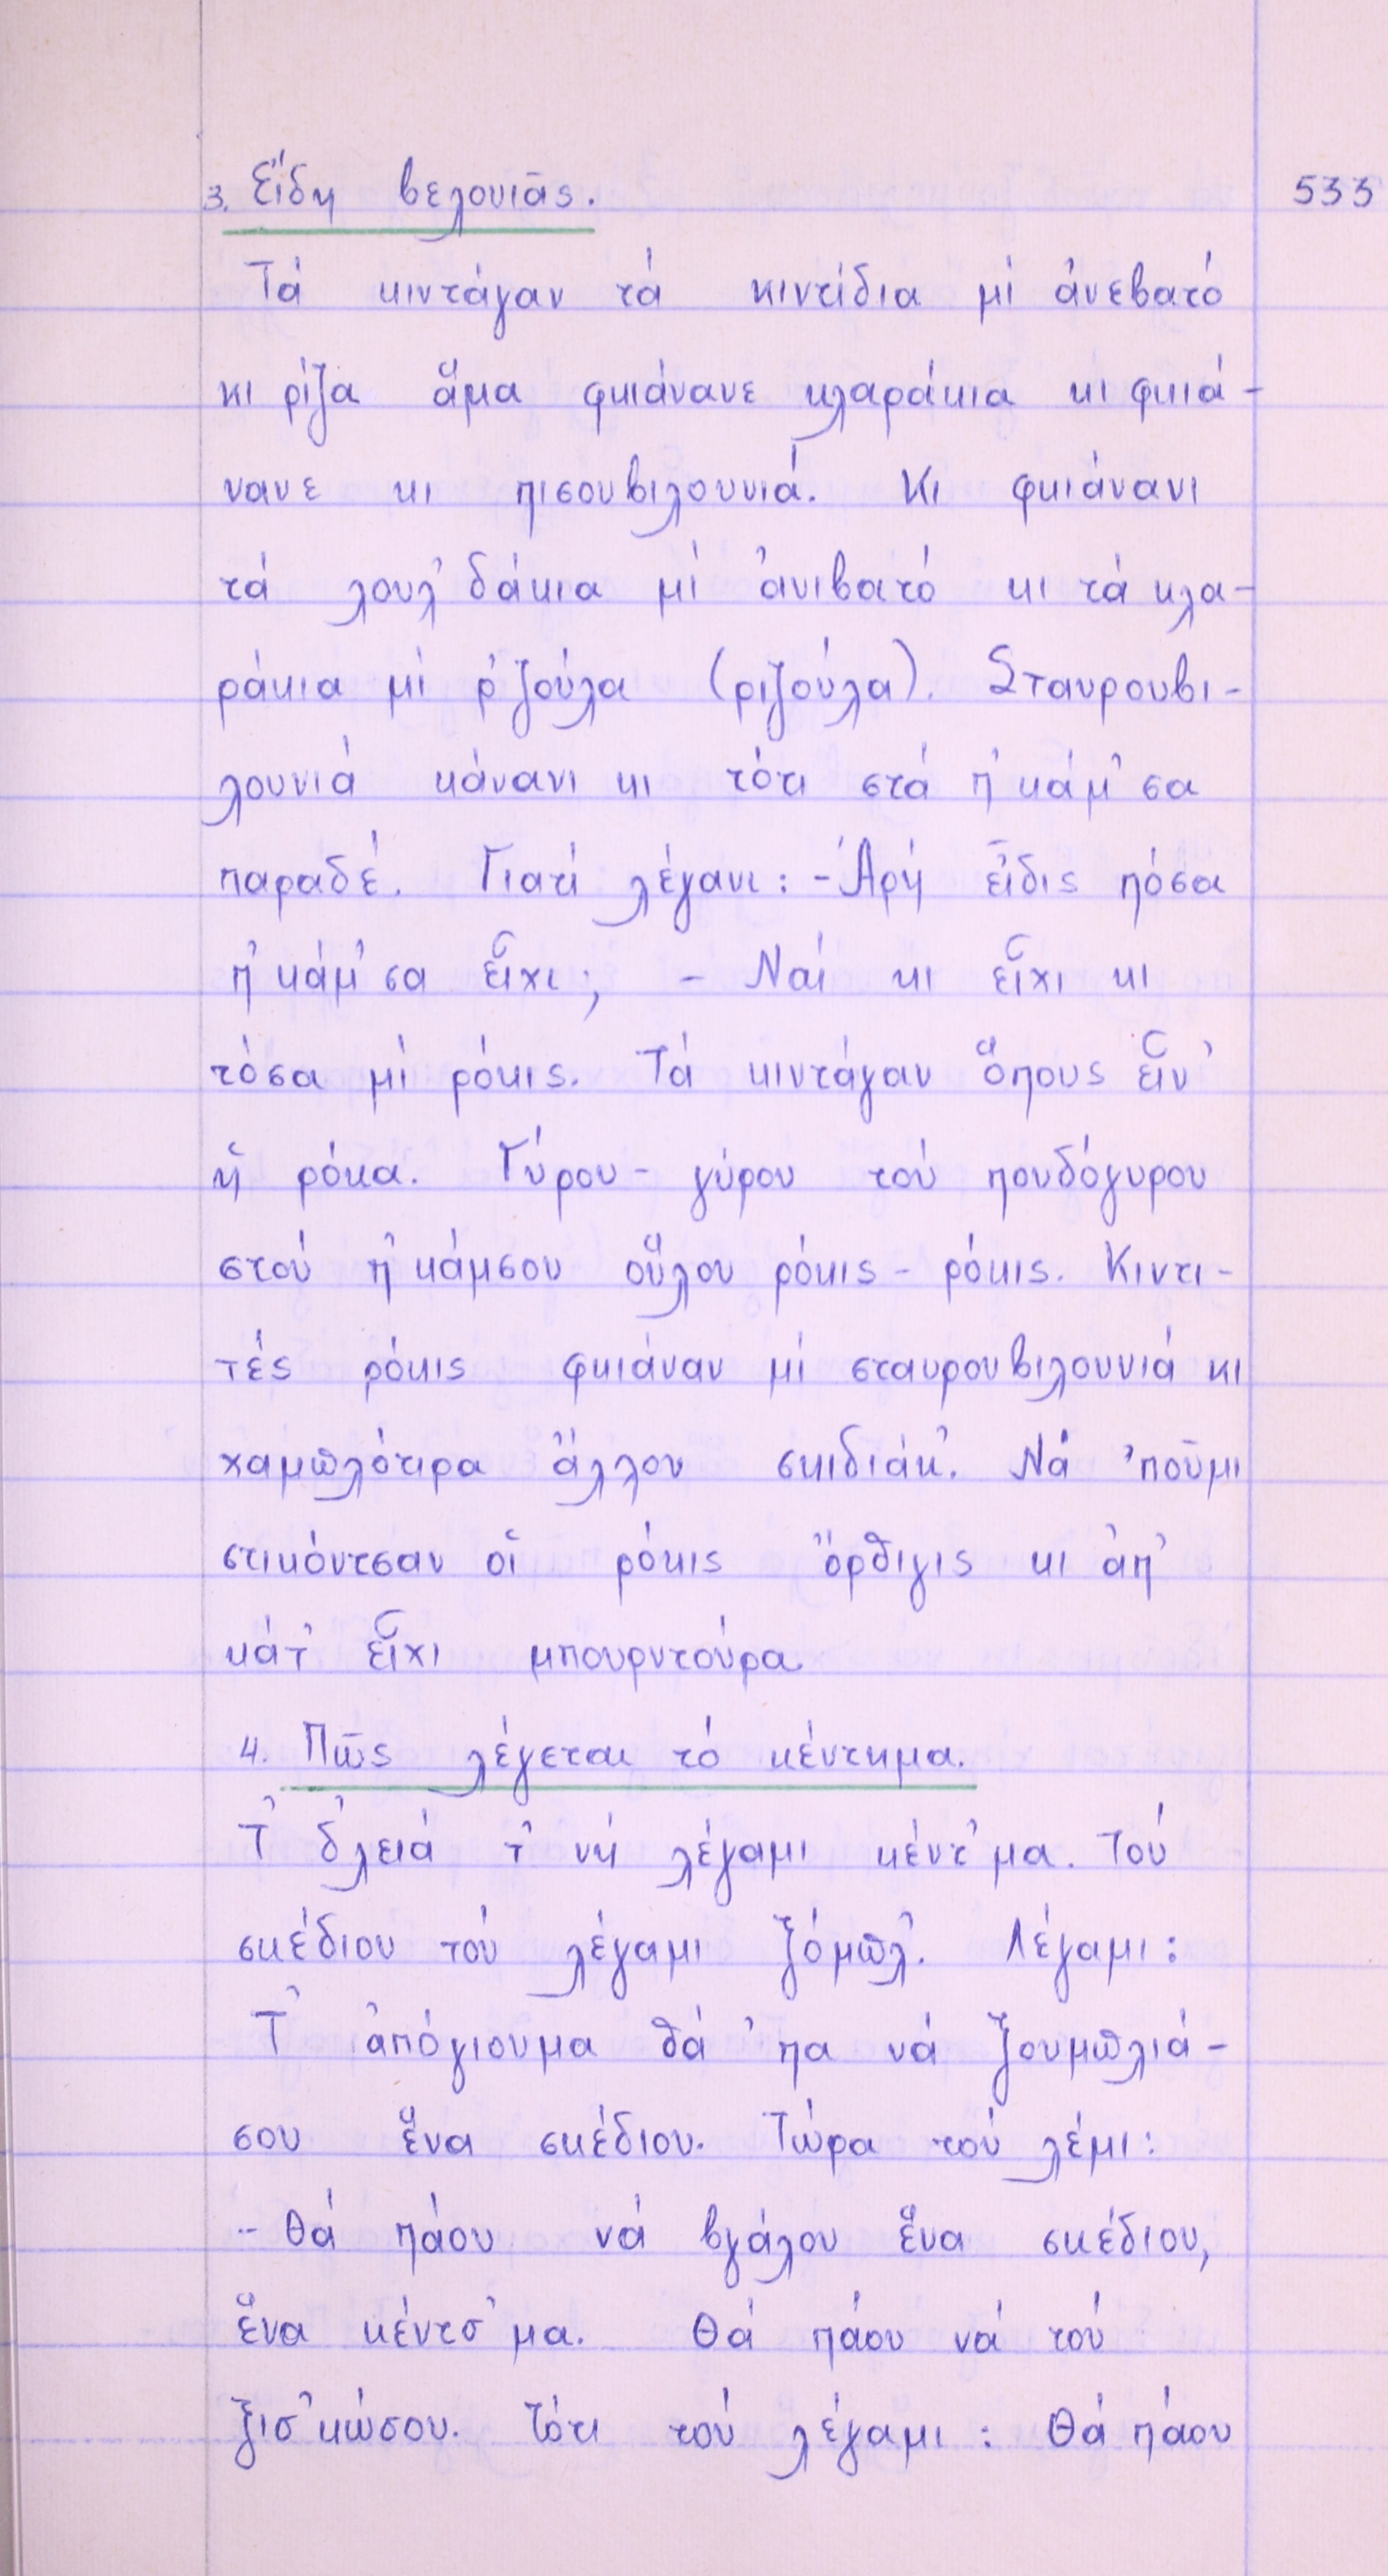 3. Εἴδη βελονιᾶς. 533
Τά κιντάγαν τά κιντίδια μί ἀνεβατό
κι ρίζα ἅμα φκιάνανε κλαράκια κι φκιά-
νανε κι πισουβιλουνιά. Κι φκιάνανι
τά λουλ᾿δάκια μί ἀνιβατό κι τά κλα-
ράκια μί ρ᾿ζούλα (ριζούλα). Σταυρουβι-
λουνιά κάνανι κι τότι στά π᾿κάμ᾿σα
παραδέ. Γιατί λέγανι: - Ἀρή εἶδις πόσα
π᾿κάμ᾿σα εἶχι; - Ναί κι εἶχι κι
τόσα μί ρόκις. Τά κιντάγαν ὅπους εἶν᾿
ἡ ρόκα. Γύρου - γύρου τού πουδόγυρου
στού π᾿κάμσου οὕλου ρόκις - ρόκις. Κιντι-
τές ρόκις φκιάναν μί σταυρουβιλουνιά κι
χαμπλότιρα ἄλλου σκιδιάκ᾿. Νά ᾿ποῦμι
στικόντσαν οἱ ρόκις ὄρθιγις κι ἀπ᾿
κάτ᾿ εἶχι μπουρντούρα
4. Πῶς λέγεται τό κέντημα.
Τ᾿ δ᾿λειά τ᾿ νή λέγαμι κέντ᾿μα. Τού
σκέδιου τού λέγαμι ξόμπλ᾿. Λέγαμι:
Τ᾿ ἀπόγιουμα θά ᾿πα νά ξουμπλιά-
σου ἕνα σκέδιου. Τώρα τού λέμι:
- Θά πάου νά βγάλου ἕνα σκέδιου,
ἕνα κέντσ᾿μα. Θά πάου νά τού
ξισ᾿κώσου. Τότι τού λέγαμι: Θά πάου